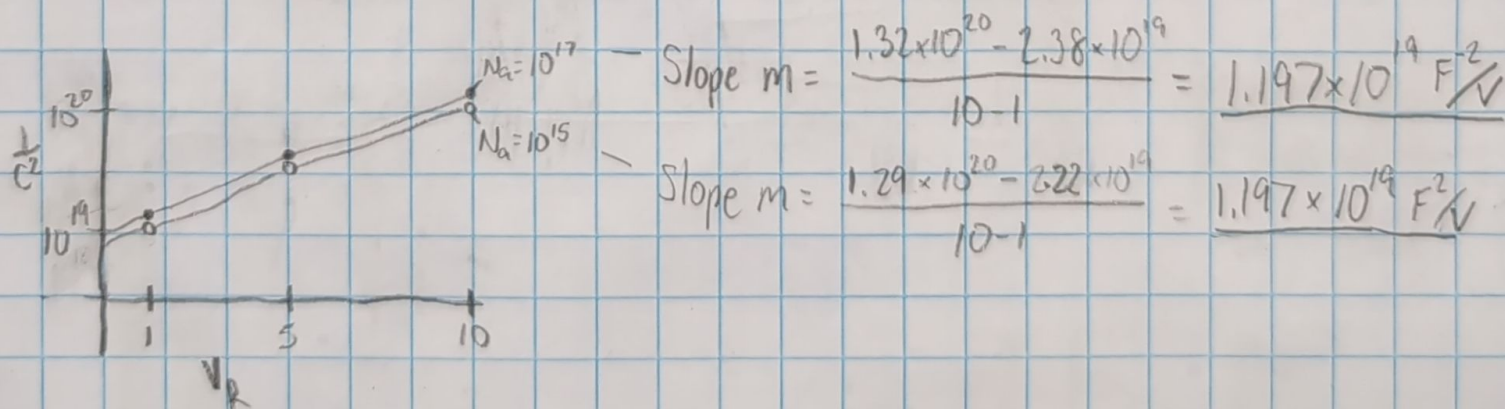 1/C² 10²⁰ 10¹⁹
Na=10¹⁷
Na=10¹⁵
1 5 10
V_R
— Slope m = (1.32×10²⁰ - 2.38×10¹⁹)/(10-1) = 1.197×10¹⁹ F⁻²/V
\ Slope m = (1.29×10²⁰ - 2.22×10¹⁹)/(10-1) = 1.197×10¹⁹ F²/V